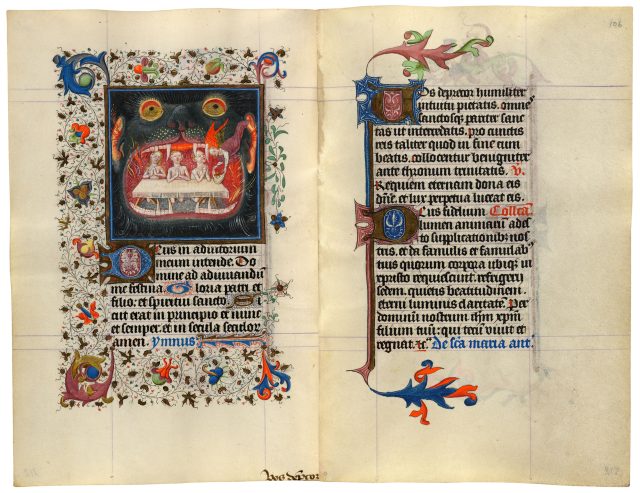 Deus in adiutorium
meum intende. Do
mine ad adiuuandū
me festina. Gloria patri et
filio. et spiritui sancto. Si
cut erat in principio et nunc
et semper. et in secula seculor
amen. ymnus
vos deprcor
106
Vos deprecor humiliter
intuitu pietatis. omnes
sanctosq; pariter sanc
tas ut intercedatis. pro cunctis
reis taliter quod in fine cum
beatis. collocentur benigniter
ante thronum trinitatis. V.
Requiem eternam dona eis
dn̄e. et lux perpetua luceat eis.
Deus fidelium Collecta
lumen animarū ades
to supplicationib; nos
tris. et da famulis et famulab;
tuis quorum corpora ubiq; in
xpristo requiescunt. refrigerii
sedem. quietis beatitudinem.
eterni luminis claritatē. Per
dominū nostrum ihm xpm
filium tuū: qui tecū viuit et
regnat. etc. De scā maria ant.